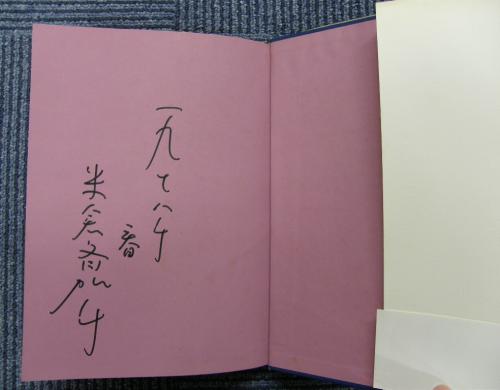 一九七八年
春
米倉斉加年